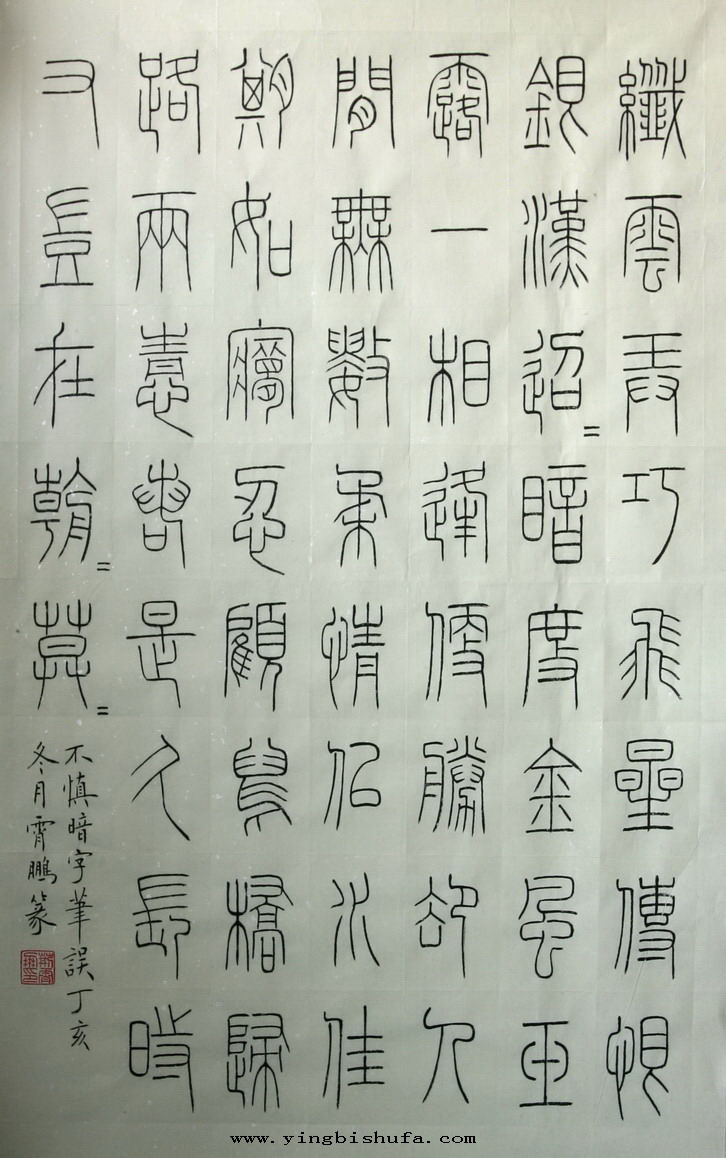 纖雲弄巧飛星傳恨
銀漢迢=暗度金風玉
露一相逢便勝卻人
閒無數柔情似水佳
期如夢忍顧鵲橋歸
路兩情若是久長時
又豈在朝=莫=
不慎暗字筆誤丁亥
冬月霄鵬篆
www.yingbishufa.com